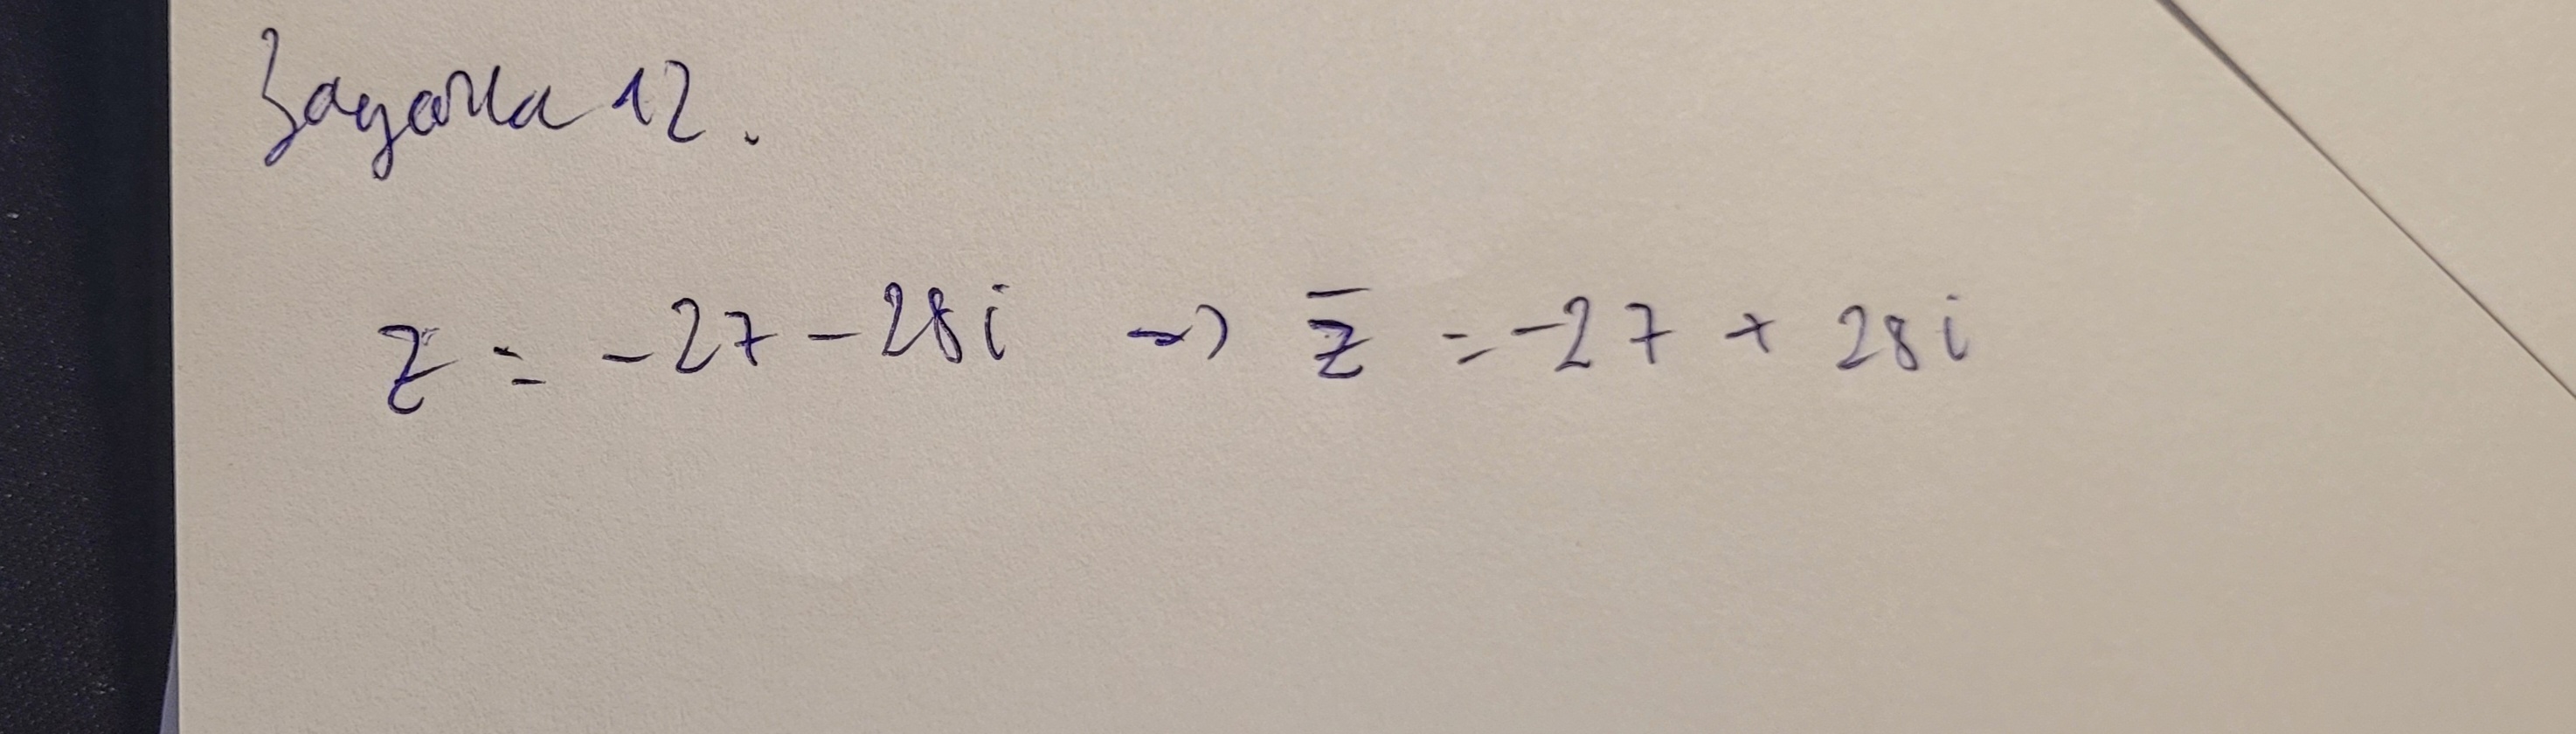 Задача 12.
z = -27 - 28i => z̅ = -27 + 28i